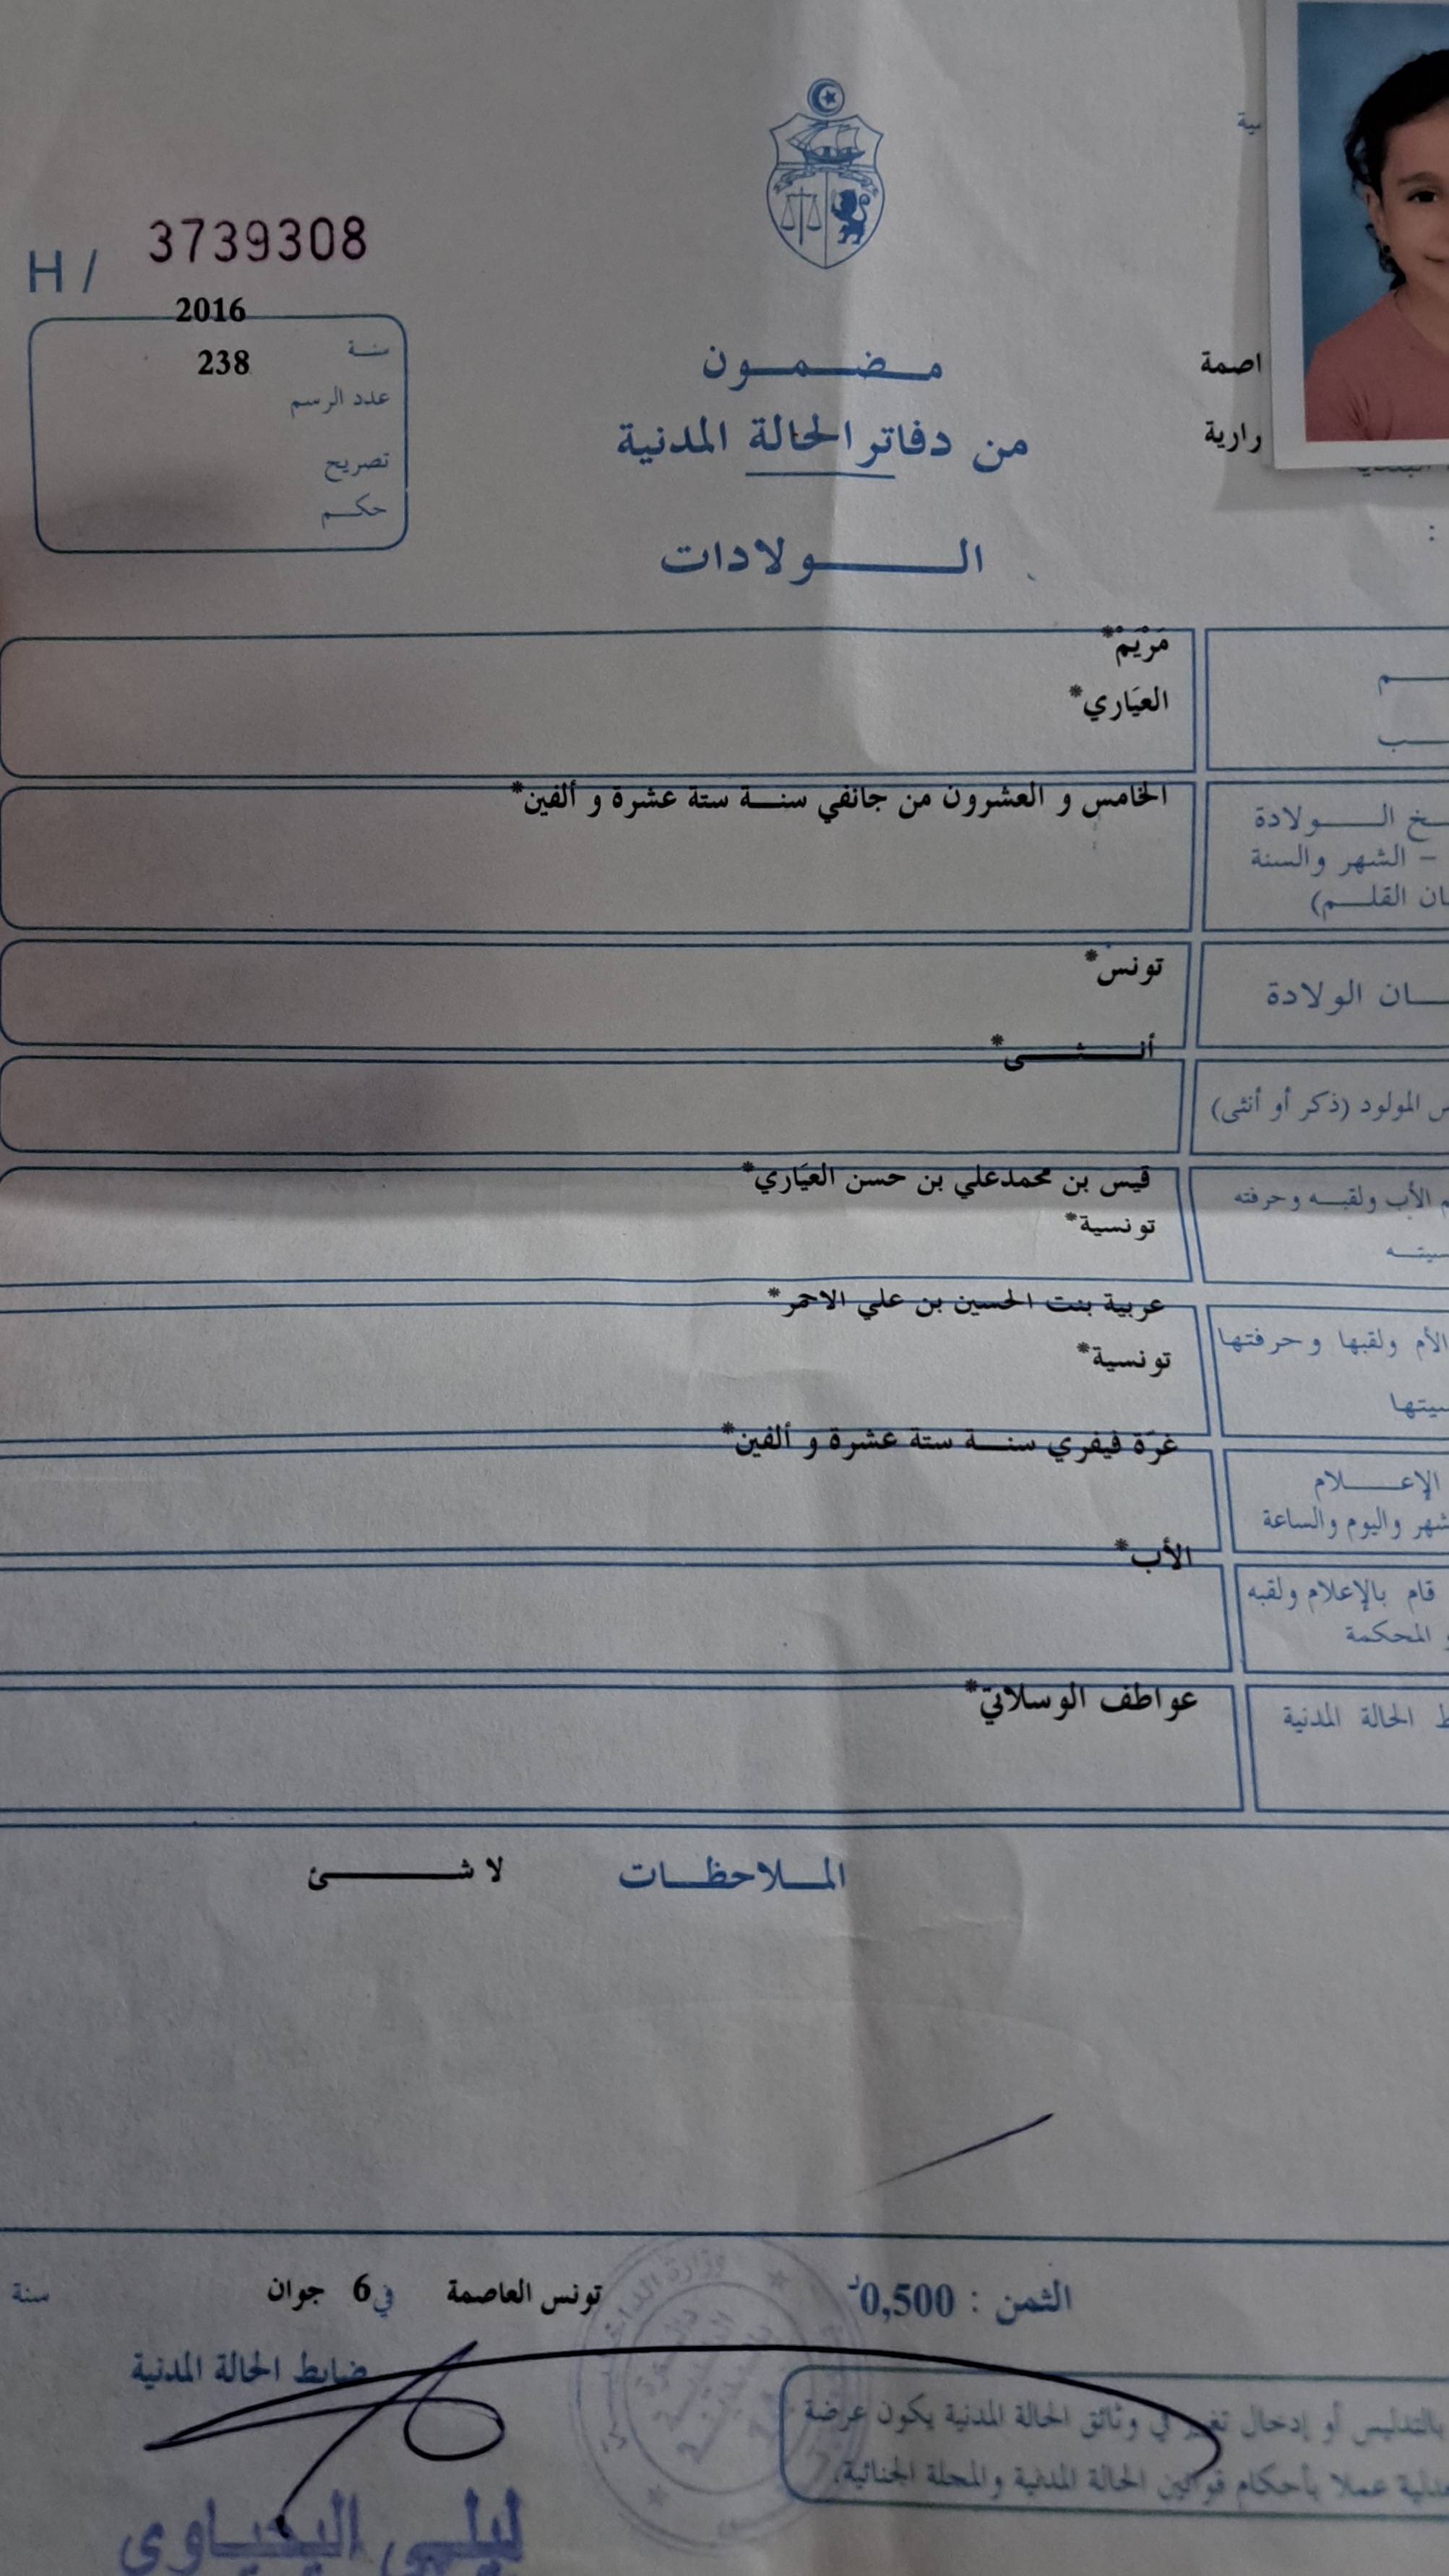 H / 3739308
2016
سنة
238
عدد الرسم
تصريح
حكم
مضمون
من دفاتر الحالة المدنية
الولادات
اصمة
رارية
مَرْيَمْ*
العيَاري*
الخامس و العشرون من جانفي سنة ستة عشرة و ألفين*
ـخ الولادة
– الشهر والسنة
ـان القلم)
تونس*
ـان الولادة
أنثى*
ـس المولود (ذكر أو أنثى)
قيس بن محمدعلي بن حسن العيَاري*
ـم الأب ولقبه وحرفته
تونسية*
ـسيته
عربية بنت الحسين بن علي الاحمر*
الأم ولقبها وحرفتها
تونسية*
ـسيتها
غرَة فيفري سنة ستة عشرة و ألفين*
الإعلام
شهر واليوم والساعة
الأب*
قام بالإعلام ولقبه
و المحكمة
عواطف الوسلاتي*
ـط الحالة المدنية
الملاحظات لا شئ
الثمن : 0,500د
تونس العاصمة في 6 جوان سنة
ضابط الحالة المدنية
بالتدليس أو إدخال تغيير في وثائق الحالة المدنية يكون عرضة
ـدلية عملا بأحكام قوانين الحالة المدنية والمجلة الجنائية.
ليلى اليحياوي